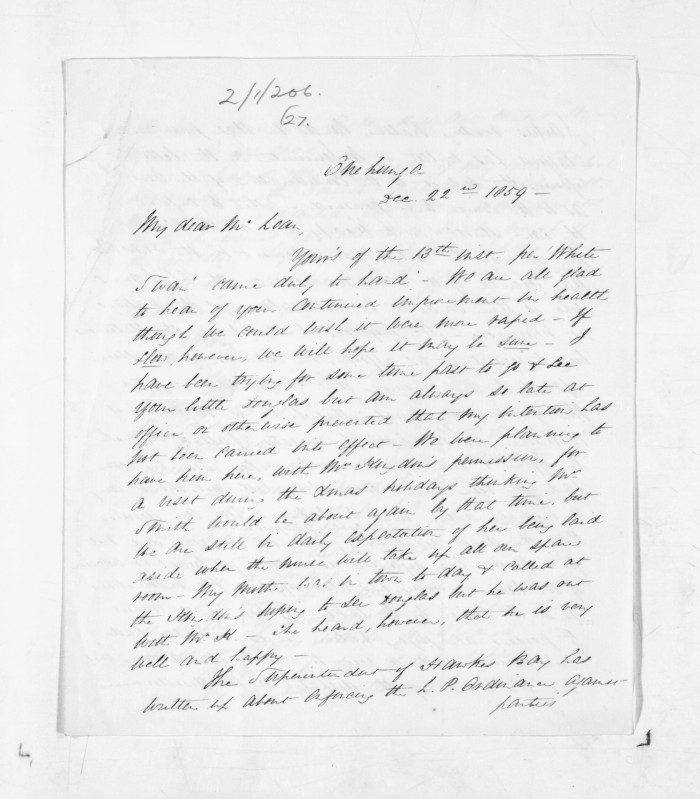 2/1/206.
627.
Onehunga
Dec. 22nd 1859 -
My dear Mc Lean,
Yours of the 13th inst. per "White
Swan" came duly to hand - We are all glad
to hear of your continued improvement in health
though we could wish it were more rapid - If
slow, however, we will hope it may be sure - I
have been trying for some time past to go & see
your little Douglas but am always so late at
office or otherwise prevented that my intention has
not been carried into effect - We were planning to
have him here, with Mrs Kingdon's permission, for
a visit during the Xmas holidays thinking Mrs
Smith would be about again by that time, but
we are still in daily expectation of her being laid
aside when the nurse will take up all our spare
room - My Mother was in town to day & called at
the Kingdon's hoping to see Douglas but he was out
with Mr K - She heard, however, that he is very
well and happy -
The Superintendent of Hawkes Bay has
written up about enforcing the L. P. Ordinance against
parties